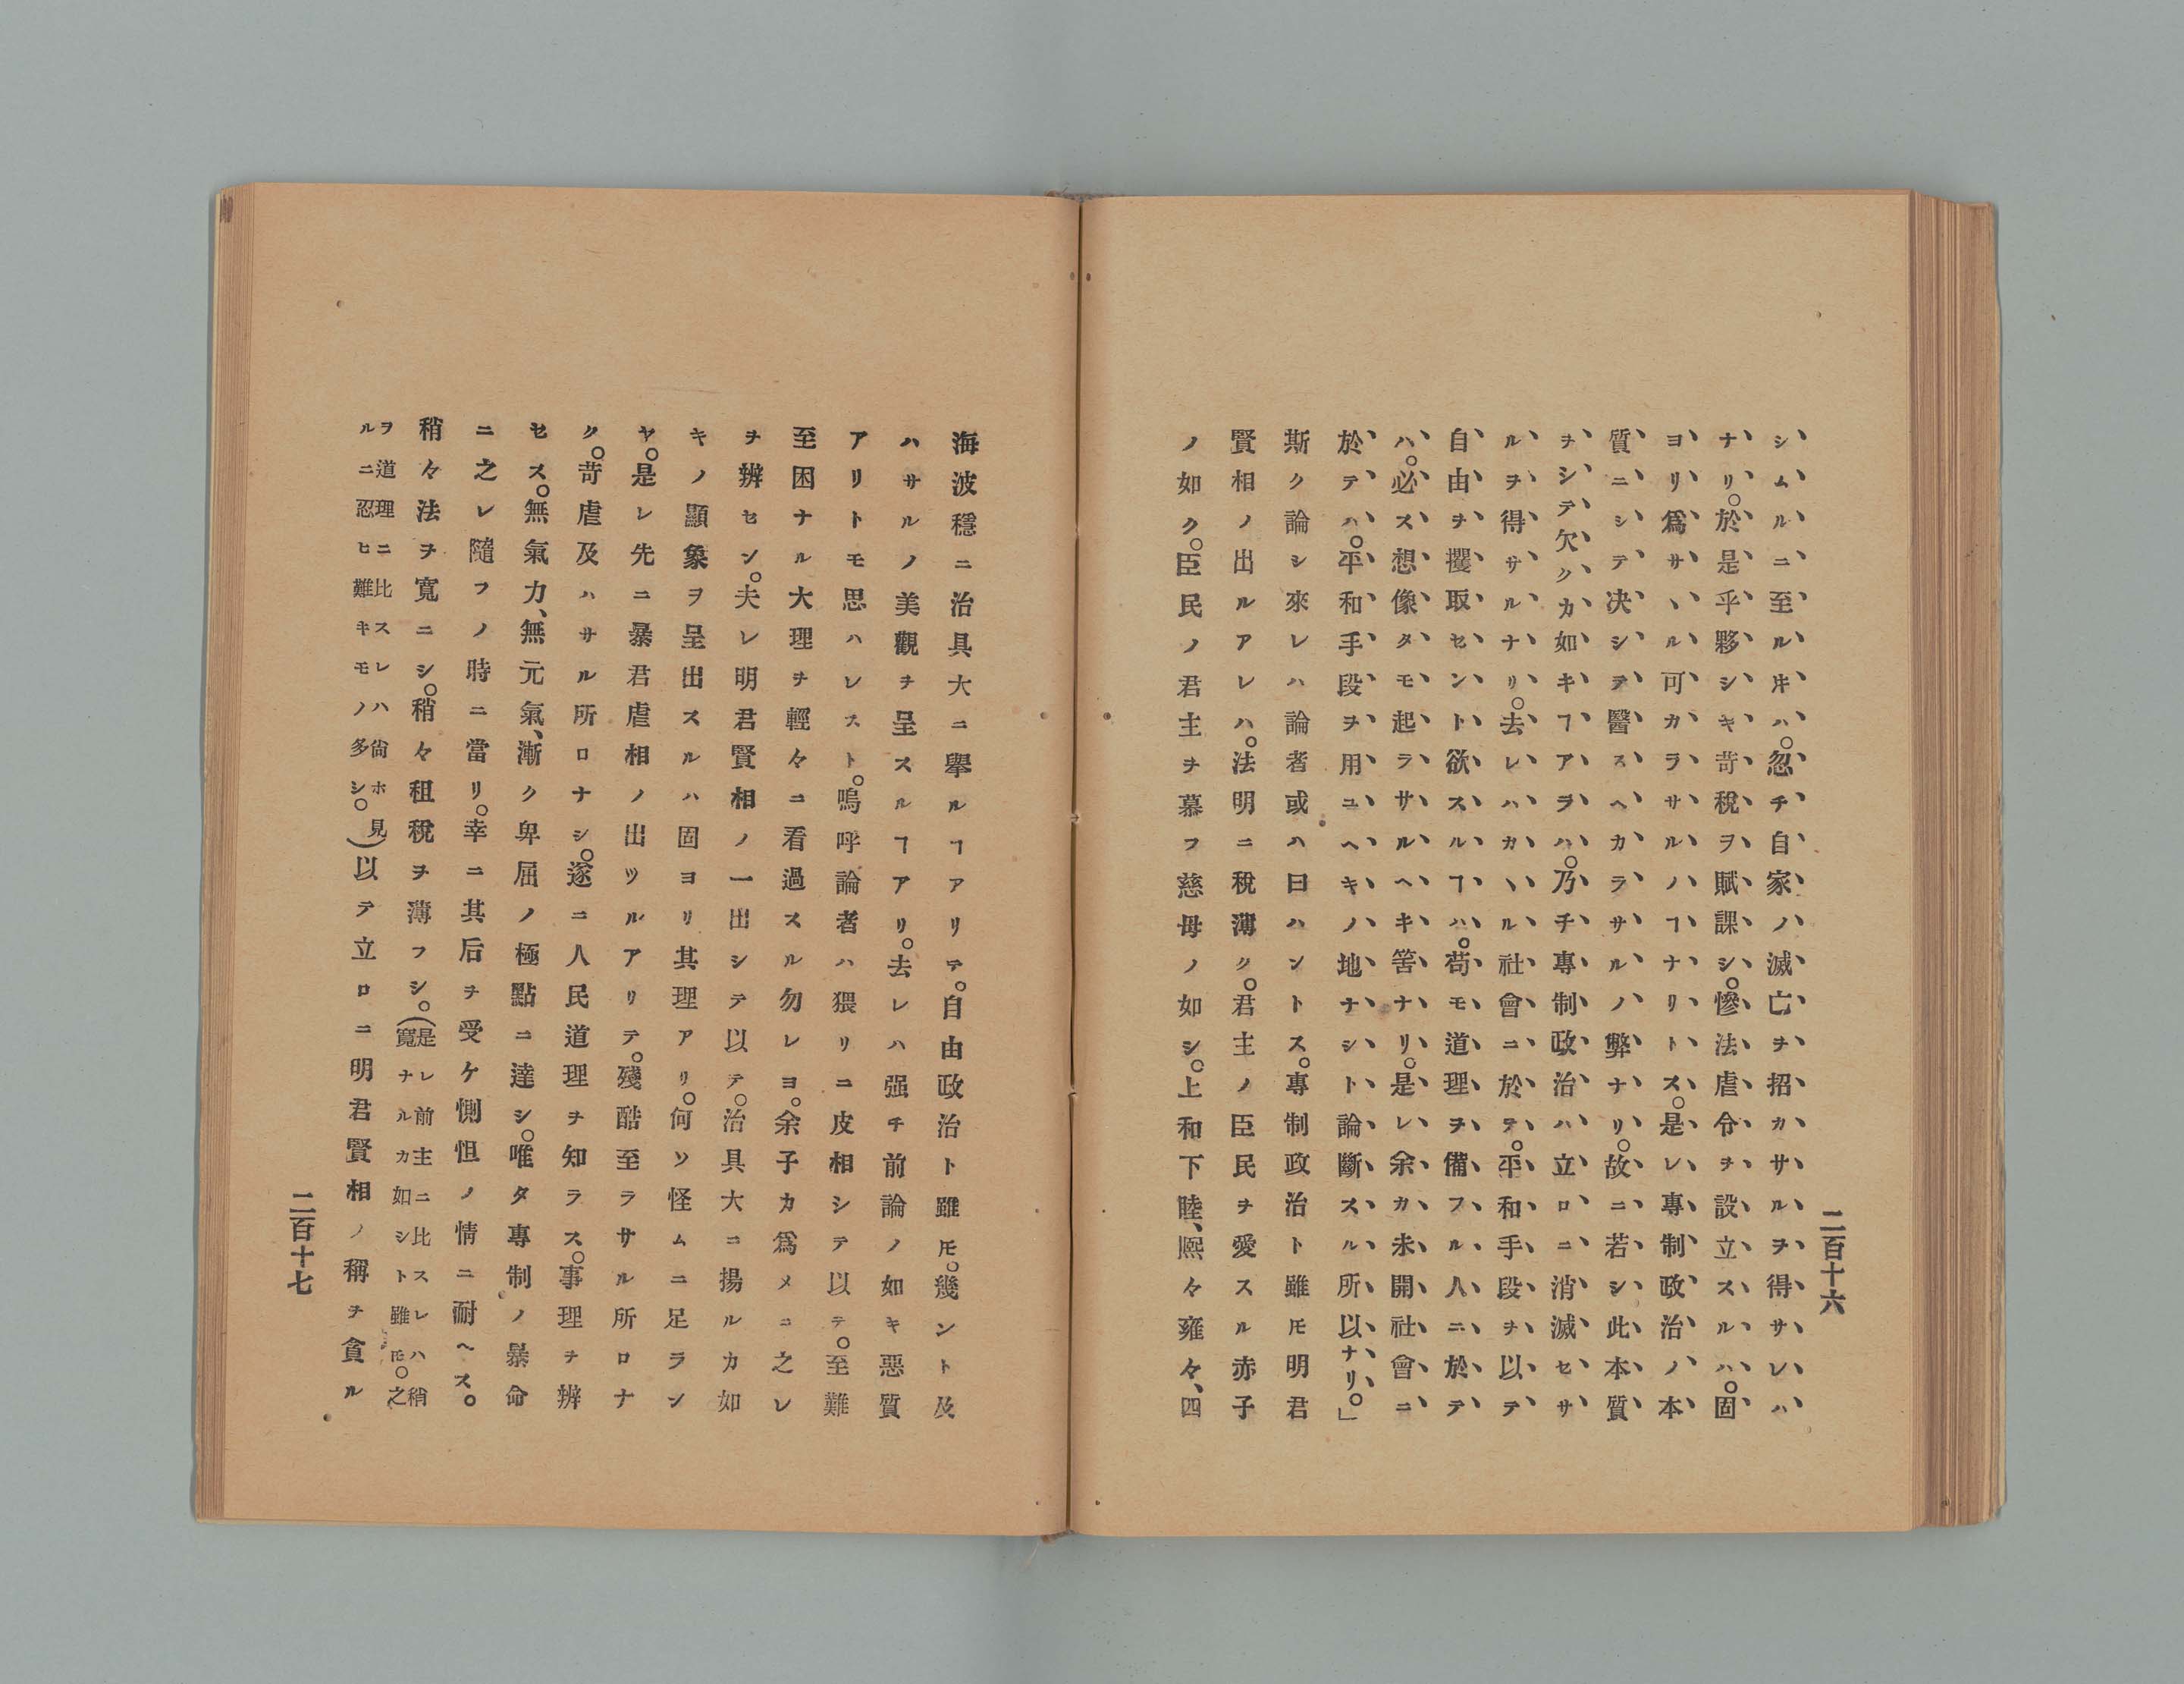 シムルニ至ルヰハ。忽チ自家ノ滅亡ヲ招カサルヲ得サレハ
ナリ。於是乎夥シキ苛稅ヲ賦課シ。慘法虐令ヲ設立スルハ。固
ヨリ爲サヽル可カラサルノヿナリトス。是レ專制政治ノ本
質ニシテ决シテ醫スヘカラサルノ弊ナリ。故ニ若シ此本質
ヲシテ欠クカ如キヿアラハ。乃チ專制政治ハ立ロニ消滅セサ
ルヲ得サルナリ。去レハカヽル社會ニ於テ。平和手段ヲ以テ
自由ヲ攫取セント欲スルヿハ。苟モ道理ヲ備フル人ニ於テ
ハ。必ス想像タモ起ラサルヘキ筈ナリ。是レ余カ未開社會ニ
於テハ。平和手段ヲ用ユヘキノ地ナシト論斷スル所以ナリ。」
斯ク論シ來レハ論者或ハ曰ハントス。專制政治ト雖𪜈明君
賢相ノ出ルアレハ。法明ニ稅薄ク。君主ノ臣民ヲ愛スル赤子
ノ如ク。臣民ノ君主ヲ慕フ慈母ノ如シ。上和下睦、熈々雍々、四
二百十六
海波穩ニ治具大ニ擧ルヿアリテ。自由政治ト雖𪜈。幾ント及
ハサルノ美觀ヲ呈スルヿアリ。去レハ强チ前論ノ如キ惡質
アリトモ思ハレスト。嗚呼論者ハ猥リニ皮相シテ以テ。至難
至困ナル大理ヲ輕々ニ看過スル勿レヨ。余子カ爲メニ之レ
ヲ辨セン。夫レ明君賢相ノ一出シテ以テ。治具大ニ揚ルカ如
キノ顯象ヲ呈出スルハ固ヨリ其理アリ。何ソ怪ムニ足ラン
ヤ。是レ先ニ暴君虐相ノ出ツルアリテ。殘酷至ラサル所ロナ
ク。苛虐及ハサル所ロナシ。遂ニ人民道理ヲ知ラス。事理ヲ辨
セス。無氣力、無元氣、漸ク卑屈ノ極點ニ達シ。唯タ專制ノ暴命
ニ之レ隨フノ時ニ當リ。幸ニ其后ヲ受ケ惻怛ノ情ニ耐ヘス。
稍々法ヲ寬ニシ。稍々租稅ヲ薄フシ。(是レ前主ニ比スレハ稍
寬ナルカ如シト雖𪜈。之
ヲ道理ニ比スレハ尙ホ見
ルニ忍ヒ難キモノ多シ。)以テ立ロニ明君賢相ノ稱ヲ貪ル
二百十七